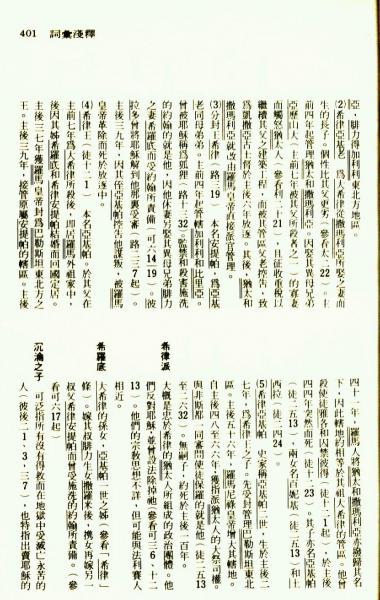 401 詞彙淺釋
亞，腓力得加利東北方地區。
(2)希律亞基老 為大希律從撒瑪利亞所娶之妻而
生的長子。個性比其父更劣（參看太二22）。主
前四年起管理猶太和撒瑪利亞。因娶其異母兄弟
亞歷山大（主前七年被其父所殺者之一）的寡妻
而觸怒猶太人（參看利二十21），且征收重稅以
繼續其父之建築工程，而被其管區父老控告，致
為凱撒亞古士督於主後六年放逐。其後，猶太和
撒瑪利亞就改由羅馬皇帝直接派官管理。
(3)分封王希律（路三19） 本名安提帕，為亞基
老同母弟。主前四年起管轄加利利和比里亞。
曾被耶穌稱為狐狸（路十三32）。監禁和殺害施洗
的約翰的就是他，因他休妻另娶其異母兄弟腓力
之妻希羅底而受約翰所責備（可六14/19）。彼
拉多曾將耶穌解到他那裏受審（路二三7起）。
主後三九年，因其侄亞基帕控告他謀叛，被羅馬
皇帝革除而死於放逐中。
(4)希律王（徒十二1） 本名亞基帕。於其父在
主前七年為大希律所殺後，即居羅馬外祖家中，
後因其姊希羅底和希律安提帕結婚而回國定居。
主後三七年獲羅馬皇帝封為巴勒斯坦東北方之
王。主後三九年，接管原屬安提帕的轄區。主後
四十一年，羅馬人將猶太和撒瑪利亞亦劃歸其名
下，因此轄地約相等於其祖大希律的管區。他曾
殺使徒雅各和囚禁彼得（徒十二1起），於主後
四四年突然而死（徒十二23）。其子亦名亞基帕
（徒二五13），兩女名百妮基（徒二五13）和土
西拉（徒二四24）。
(5)希律亞基帕 史家稱亞基帕二世，生於主後二
七年，為希律王之子。先受封管理巴勒斯坦東北
區。主後五十六年，羅馬尼祿皇帝增大其轄地。
自主後四八至六六年，獲指派猶太人的大祭司權。
與非斯都一同審問使徒保羅的就是他（徒二五13
至二六32）。無嗣子，約死於主後一百年。
希律派 大概是忠於希律的猶太人所組成的政治團體。他
們反對耶穌，並曾設法除掉祂（參看可三6、十二
13）。他們的宗教思想不詳，但可能與法利賽人
相近。
希羅底 大希律的孫女，亞基帕一世之姊（參看「希律」
條）。嫁其叔腓力生女撒羅米後，携女再嫁另一
叔父希律安提帕而曾受施洗的約翰所責備。（參
看可六17起）
沉淪之子 可泛指所有沒有得救而在地獄中受滅亡永苦的
人（彼後二1、3，三7），也特指出賣耶穌的